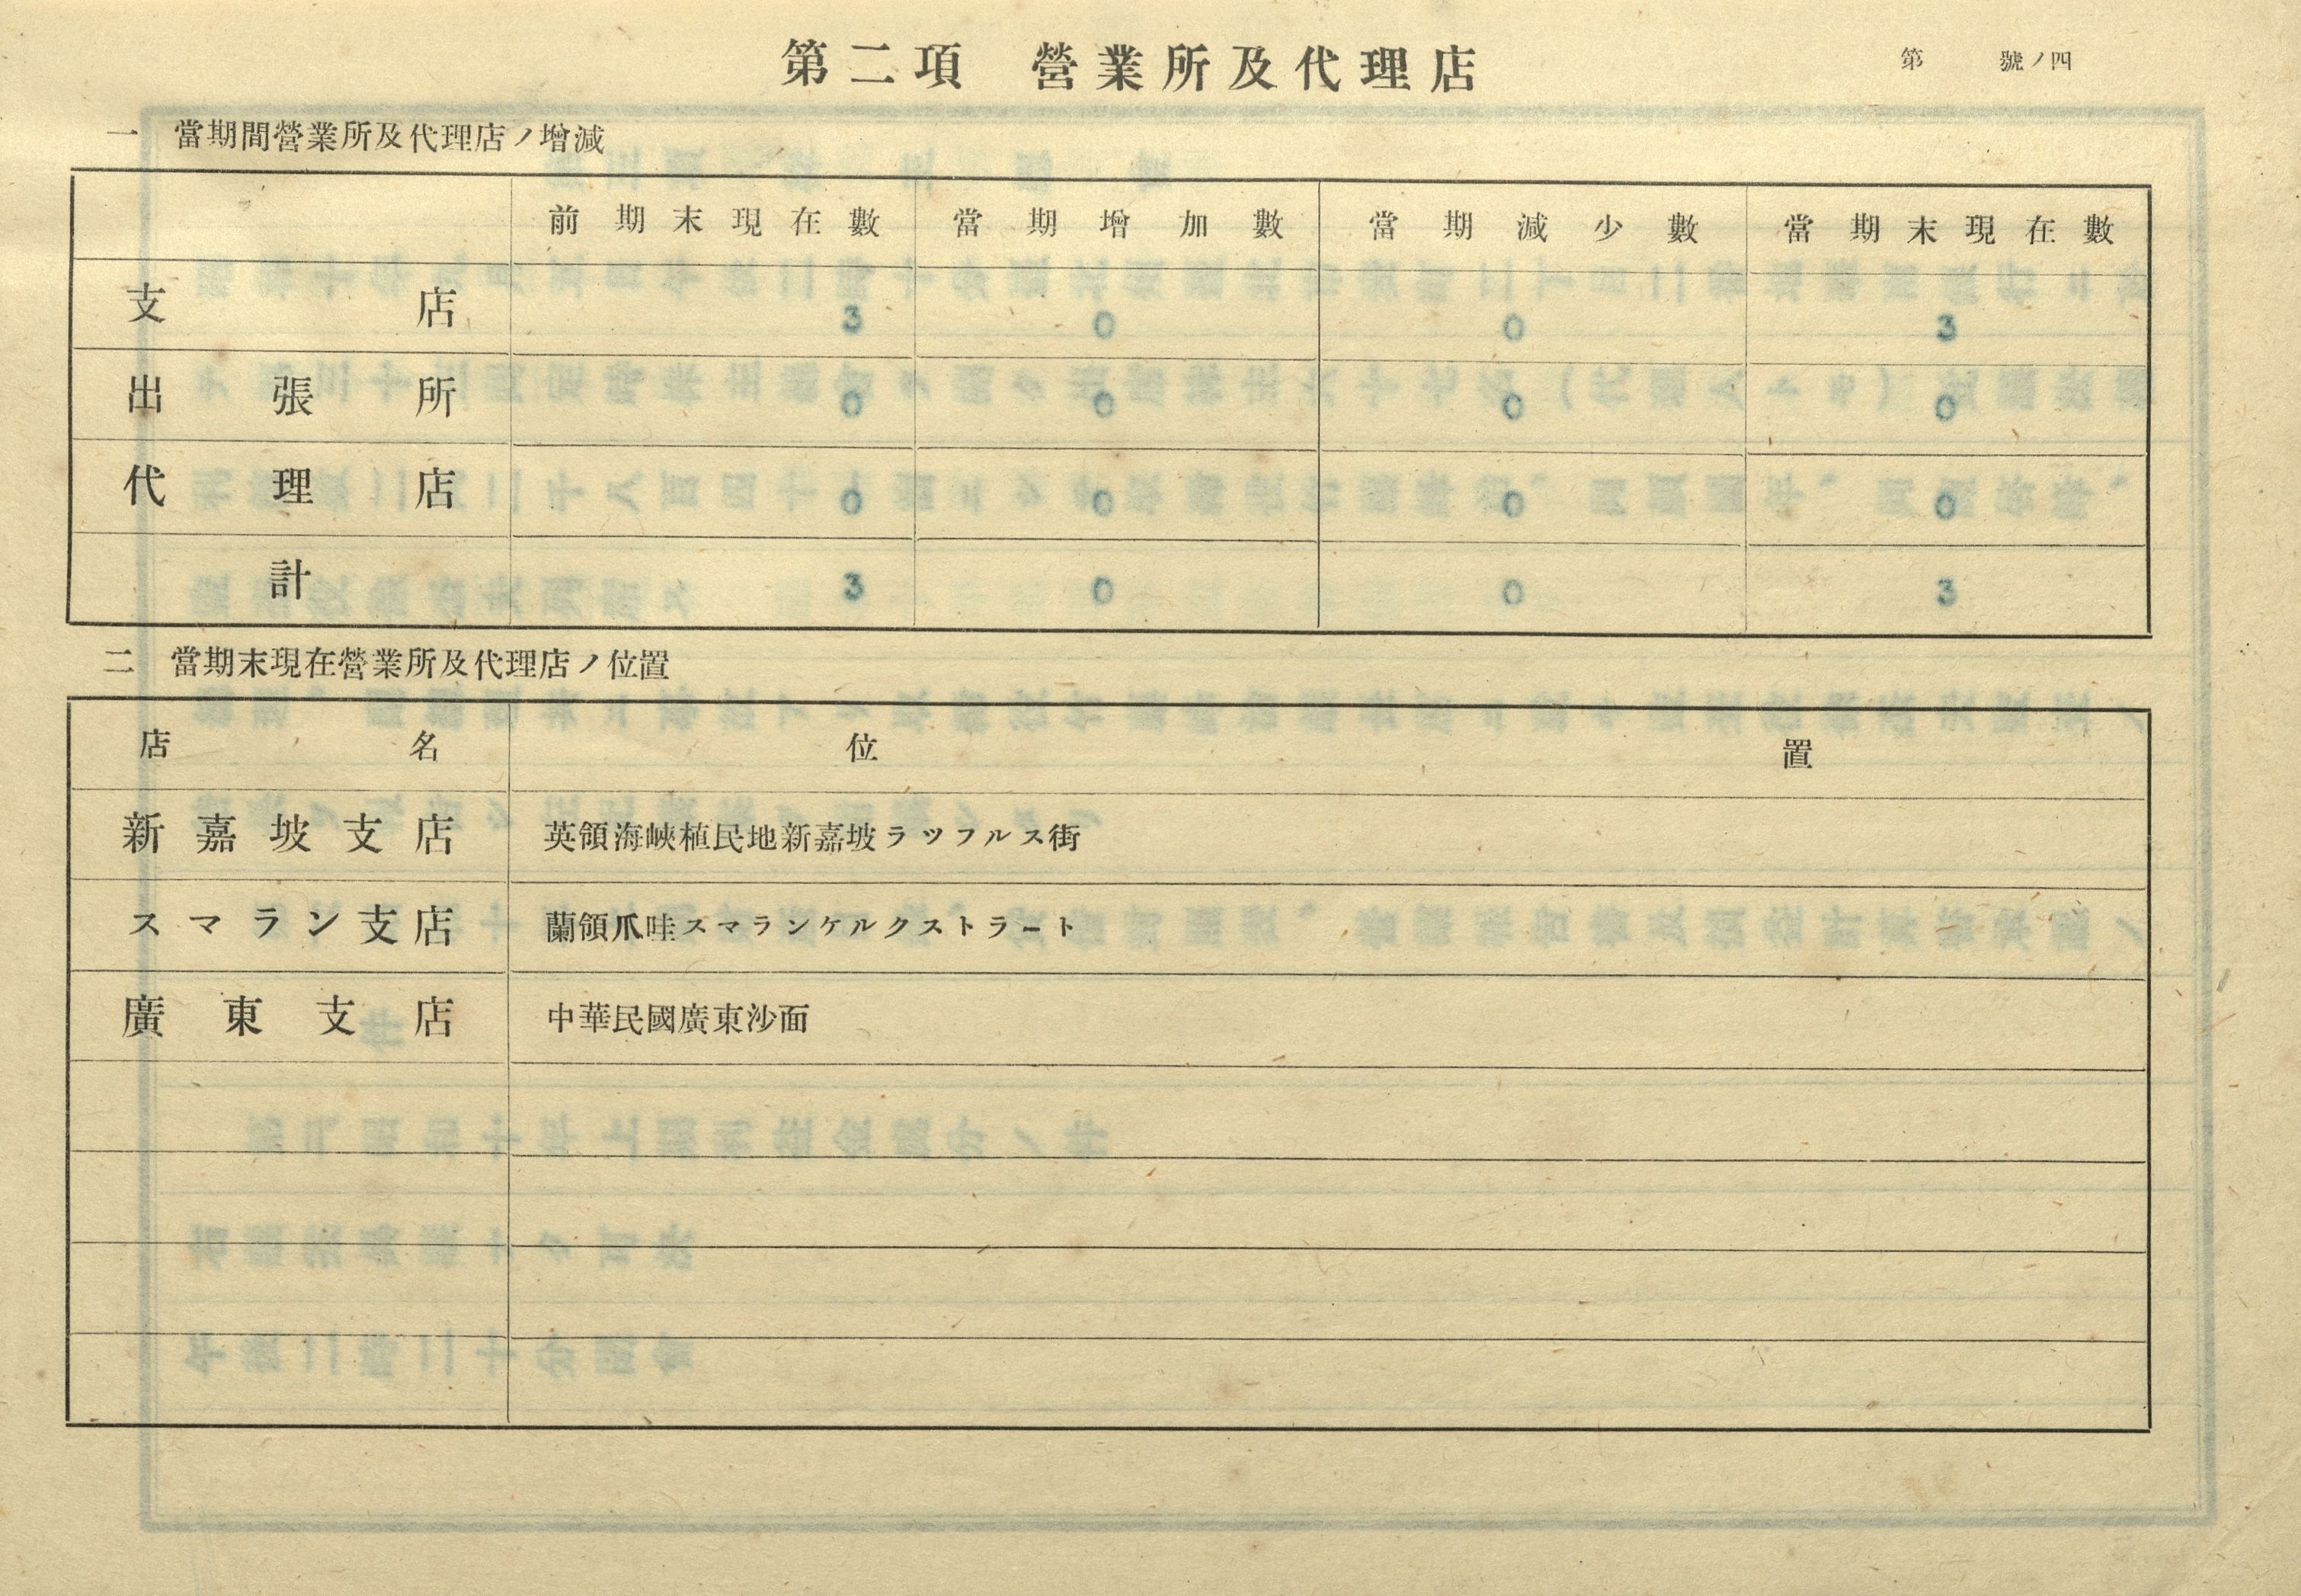 第二項　營業所及代理店
第　號ノ四
一　當期間營業所及代理店ノ增減
前期末現在數　當期增加數　當期減少數　當期末現在數
支店　3　0　0　3
出張所　0　0　0　0
代理店　0　0　0　0
計　3　0　0　3
二　當期末現在營業所及代理店ノ位置
店名　位置
新嘉坡支店　英領海峽植民地新嘉坡ラツフルス街
スマラン支店　蘭領爪哇スマランケルクストラート
廣東支店　中華民國廣東沙面